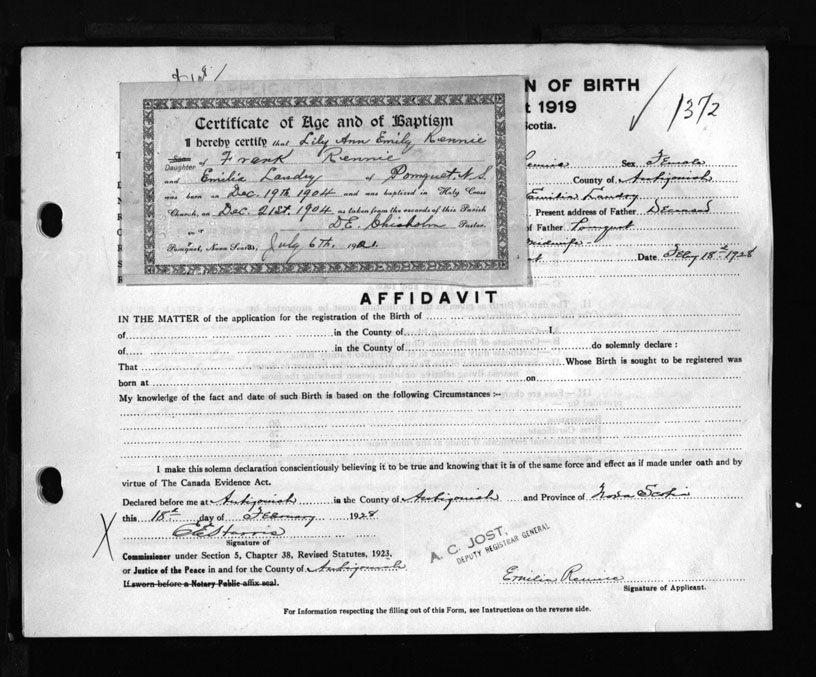 1372
N OF BIRTH
1919
Scotia.
Certificate of Age and of Baptism
I hereby certify that Lily Ann Emily Rennie
Son
Daughter of Frank Rennie
and Emilia Landry of Pomquet N.S.
was born on Dec. 19th 1904 and was baptised in Holy Cross
Church, on Dec. 21st. 1904 as taken from the records of this Parish
D.E. Chisholm Pastor.
Pomquet, Nova Scotia, July 6th, 1921.
Sex Female
County of Antigonish
Emilia Landry
Present address of Father Deceased
f Father Pomquet
midwife
Date Feby 18th 1928
AFFIDAVIT
IN THE MATTER of the application for the registration of the Birth of
of in the County of I,
of in the County of do solemnly declare :
That Whose Birth is sought to be registered was
born at on
My knowledge of the fact and date of such Birth is based on the following Circumstances :-
I make this solemn declaration conscientiously believing it to be true and knowing that it is of the same force and effect as if made under oath and by
virtue of The Canada Evidence Act.
Declared before me at Antigonish in the County of Antigonish and Province of Nova Scotia
this 18th day of February 1928
Signature of
Commissioner under Section 5, Chapter 38, Revised Statutes, 1923,
or Justice of the Peace in and for the County of Antigonish
If sworn before a Notary Public affix seal.
A. C. JOST,
DEPUTY REGISTRAR GENERAL
Emilia Rennie
Signature of Applicant.
For Information respecting the filling out of this Form, see Instructions on the reverse side.